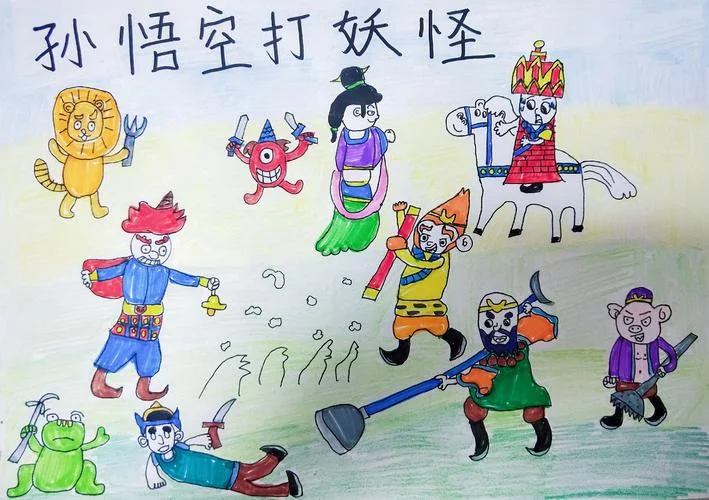 孙悟空打妖怪